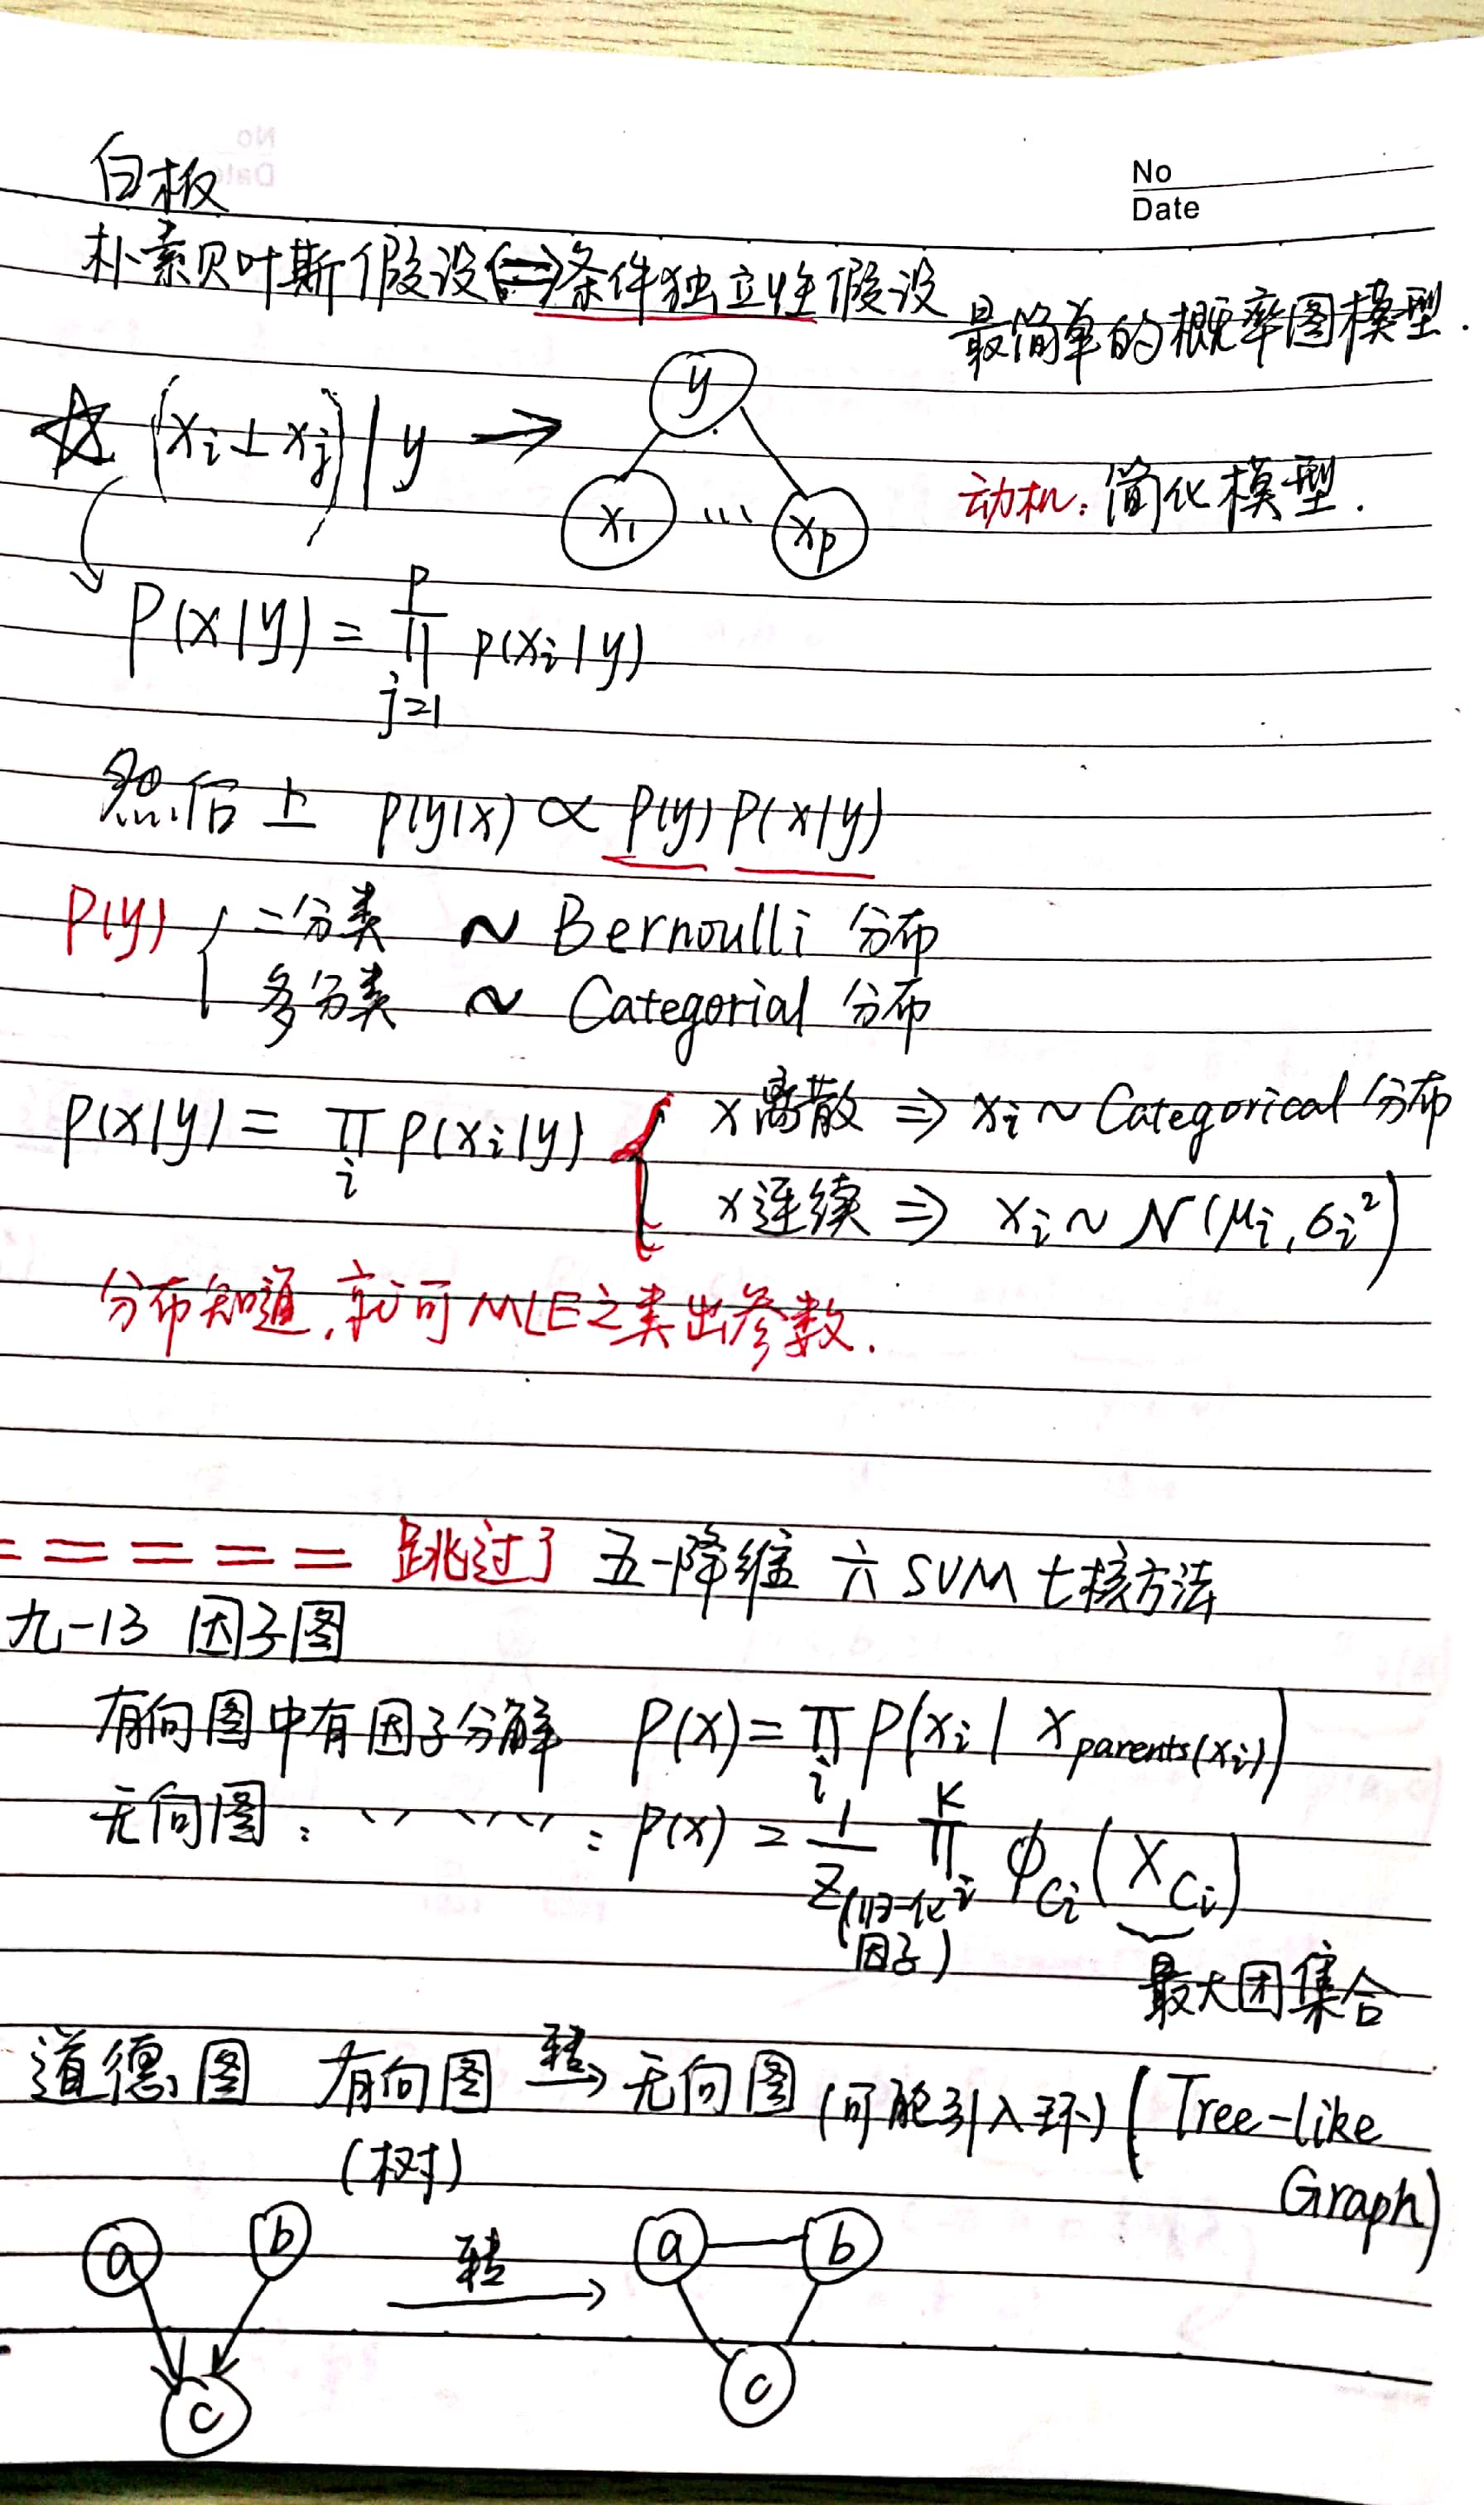 No
Date
白板
朴素贝叶斯假设⇔条件独立性假设 最简单的概率图模型.
☆ (xi⊥xj)|y → y
x1 … xp 动机:简化模型.
P(x|y) = ∏_{j=1}^{p} p(xi|y)
然后上 p(y|x) ∝ p(y) p(x|y)
p(y) { 二分类 ~ Bernoulli 分布
多分类 ~ Categorial 分布
p(x|y) = ∏_i p(xi|y) { x离散 ⇒ xi ~ Categorical 分布
x连续 ⇒ xi ~ N(μi, σi²)
分布知道,就可MLE之类出参数.
===== 跳过了 五-降维 六 SVM 七核方法
九-13 因子图
有向图中有因子分解 P(x) = ∏_i P(xi | x parents(xi))
无向图: 〃 〃 : P(x) = 1/Z ∏_i^K φ_{Ci}(X_{Ci})
(归一化因子)
最大团集合
道德图 有向图 转→ 无向图 (可能引入环) (Tree-like
(树) Graph)
a b 转 a b
c c